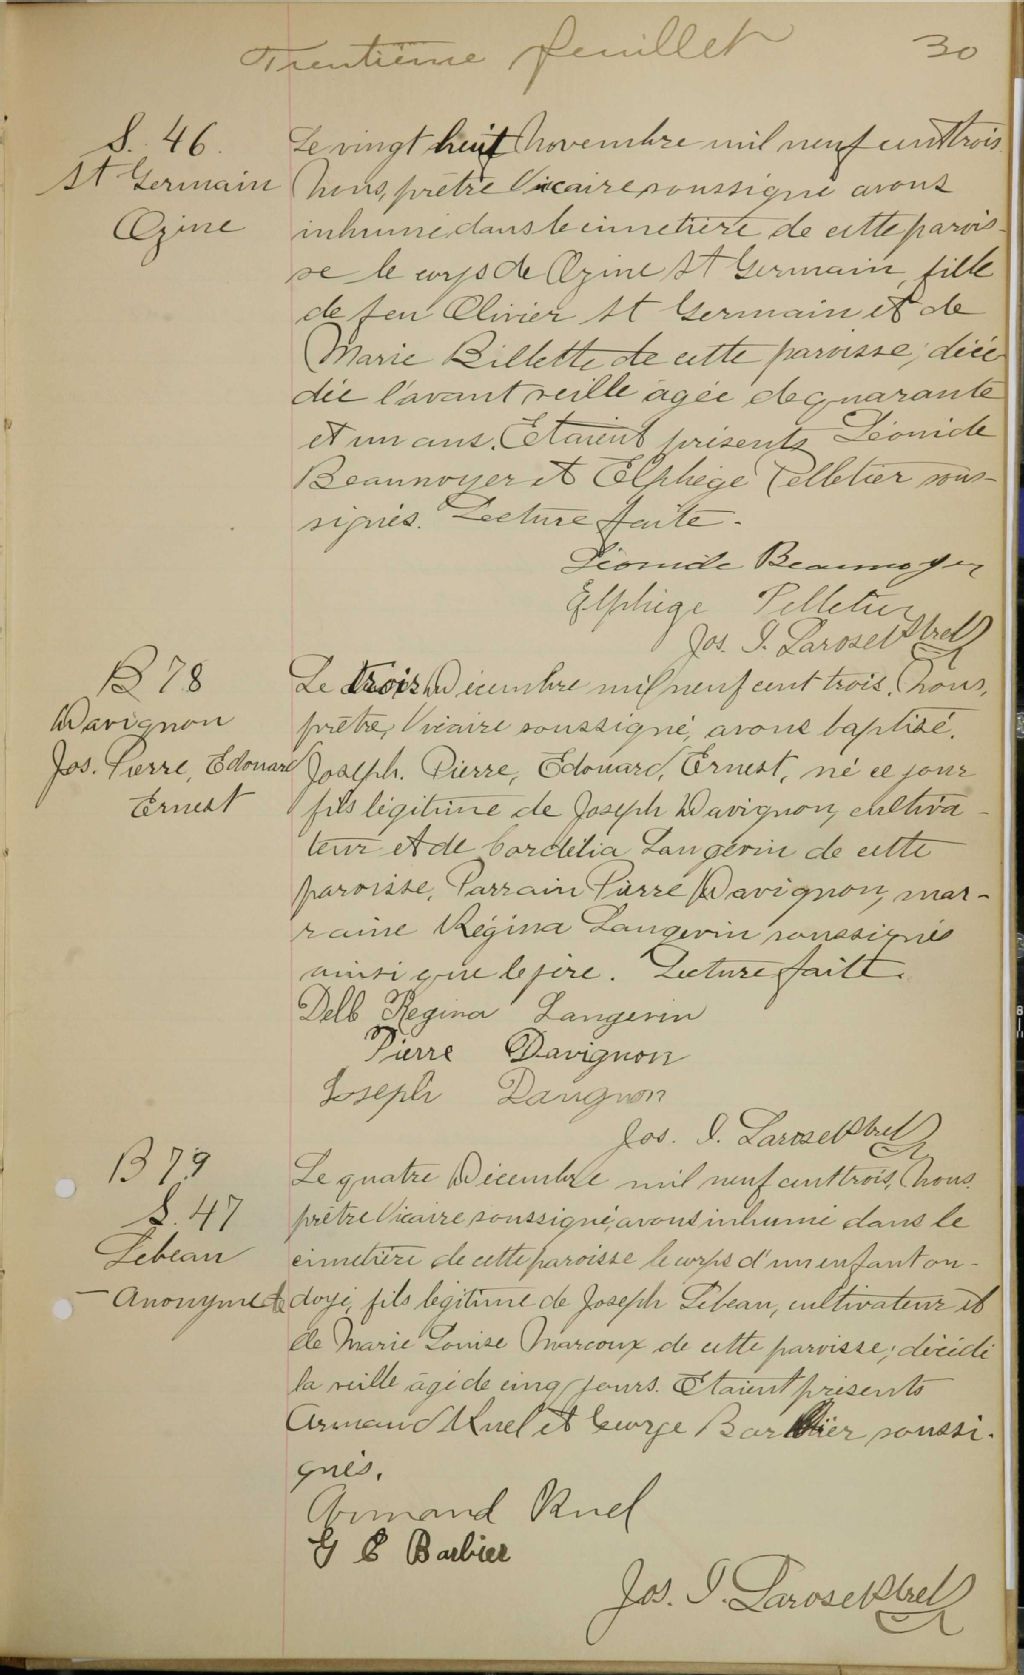 Trentième feuillet 30
S. 46.
St Germain
Ozine
Le vingt huit Novembre mil neuf cent trois.
Nous, prêtre Vicaire soussigné avons
inhumé dans le cimetière de cette parois-
se le corps de Ozine St Germain, fille
de feu Olivier St Germain et de
Marie Billette de cette paroisse; décé
dée l'avant veille âgée de quarante
et un ans. Etaient présents Léonide
Beaunoyer et Elphège Pelletier sous-
signés. Lecture faite.
Léonide Beaunoyer
Elphège Pelletier
Jos. I. Larose Ptre
B 78
Davignon
Jos. Pierre, Edouard
Ernest
Le trois Décembre mil neuf cent trois. Nous,
prêtre, Vicaire soussigné, avons baptisé.
Joseph. Pierre, Edouard, Ernest, né ce jour
fils légitime de Joseph Davignon, cultiva-
teur et de Cordélia Langevin de cette
paroisse, Parrain Pierre Davignon, mar-
raine Régina Langevin soussignés
ainsi que le père. Lecture faite.
Delle Regina Langevin
Pierre Davignon
Joseph Davignon
Jos. I. Larose Ptre
B 79
S. 47
Lebeau
- Anonyme
Le quatre Décembre mil neuf cent trois, Nous
prêtre Vicaire soussigné, avons inhumé dans le
cimetière de cette paroisse le corps d'un enfant on-
doyé, fils légitime de Joseph Lebeau, cultivateur et
de Marie Louise Marcoux de cette paroisse; décédé
la veille âgé de cinq jours. Etaient présents
Armand Ruel et George Barbier soussi-
gnés.
Armand Ruel
G E Barbier
Jos. I. Larose Ptre